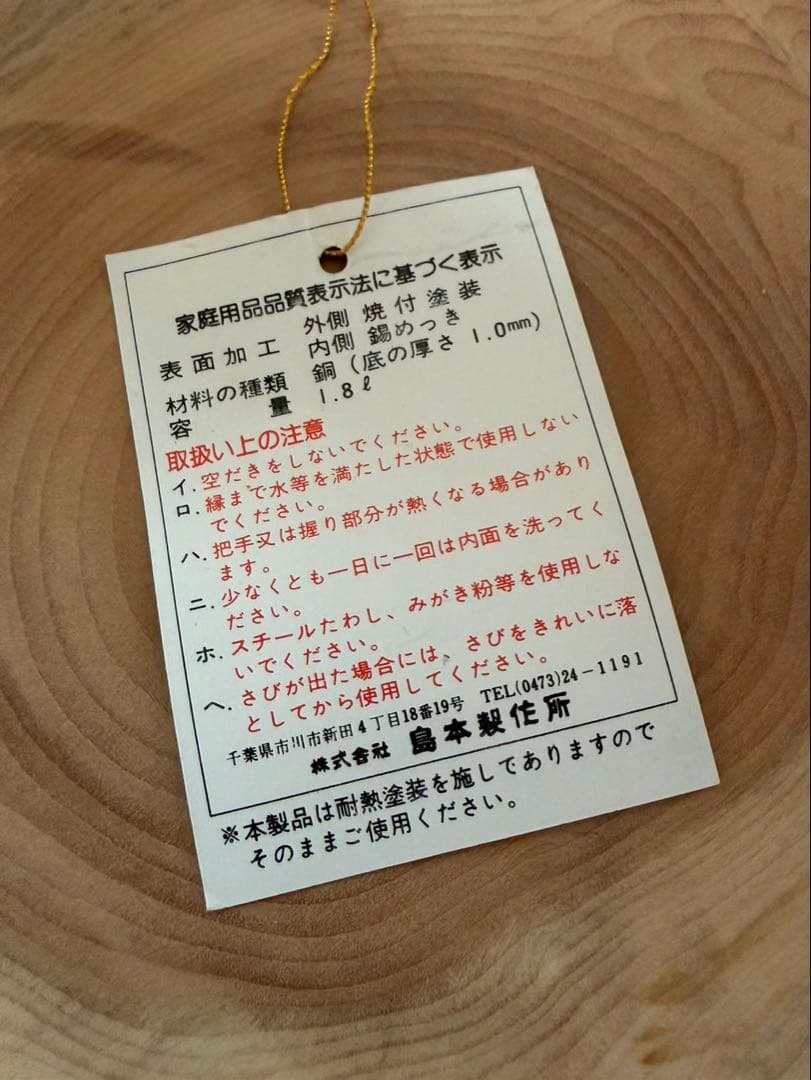 家庭用品品質表示法に基づく表示
表面加工 外側 焼付塗装
内側 錫めっき
材料の種類 銅（底の厚さ 1.0mm）
容量 1.8ℓ
取扱い上の注意
イ．空だきをしないでください。
ロ．縁まで水等を満たした状態で使用しない
でください。
ハ．把手又は握り部分が熱くなる場合があり
ます。
ニ．少なくとも一日に一回は内面を洗ってく
ださい。
ホ．スチールたわし、みがき粉等を使用しな
いでください。
ヘ．さびが出た場合には、さびをきれいに落
としてから使用してください。
千葉県市川市新田4丁目18番19号 TEL(0473)24-1191
株式会社 島本製作所
※本製品は耐熱塗装を施してありますので
そのままご使用ください。